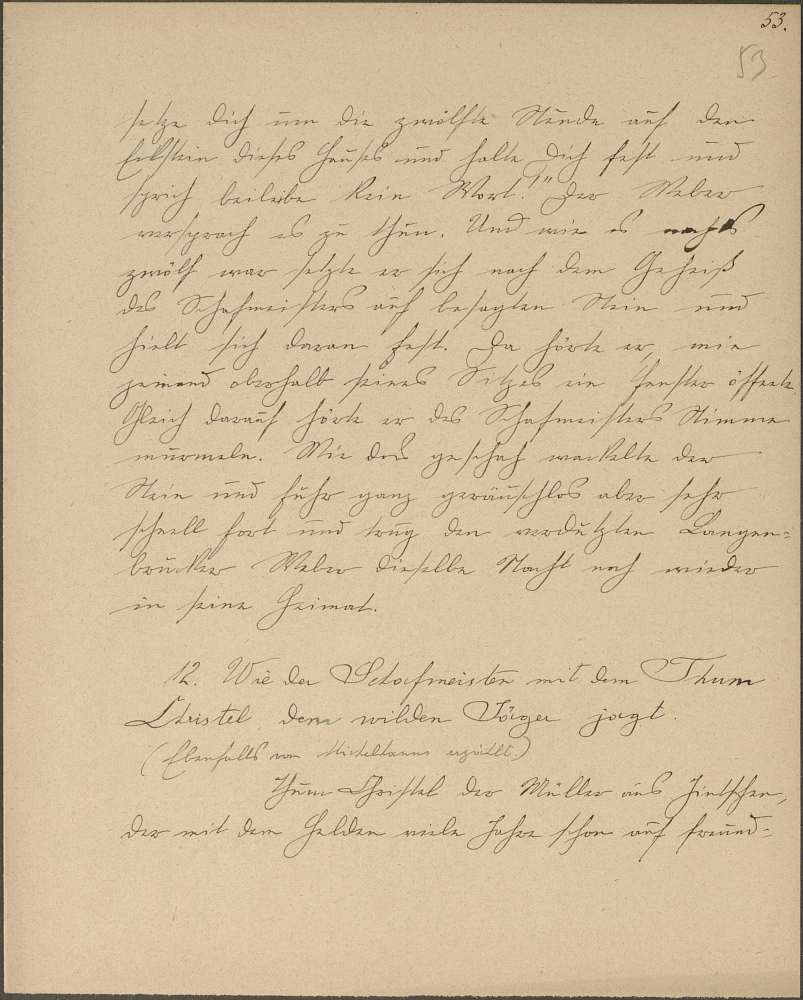 53.
53
setze dich um die zwölfte Stunde auf den
Eckstein dieses Hauses und halte Dich fest und
sprich beileibe kein Wort!" Der Weber
versprach es zu thun. Und wie es nachts
zwölf war setzte er sich nach dem Geheiß
des Schafmeisters auf besagten Stein und
hielt sich daran fest. Da hörte er, wie
jemand oberhalb seines Sitzes ein Fenster öffnete.
Gleich darauf hörte er des Schafmeisters Stimme
murmeln. Wie das geschah wackelte der
Stein und fuhr ganz geräuschlos aber sehr
schnell fort und trug den verdutzten Langen=
brücker Weber dieselbe Nacht noch wieder
in seine Heimat.
12. Wie der Schafmeister mit dem Thum
Christel, dem wilden Jäger jagt.
(Ebenfalls von erzählt.)
Thum Christel der Müller aus
der mit dem Helden viele Jahre schon auf freund=